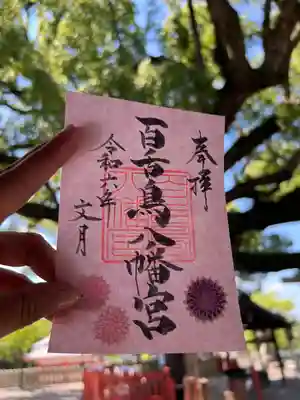 奉拝
百舌鳥八幡宮
令和六年
文月